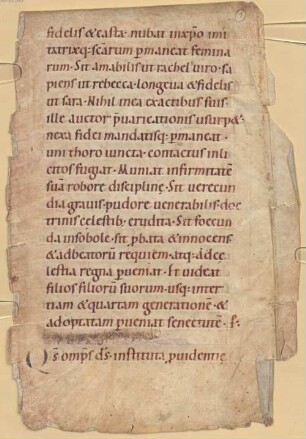 fidelis & casta · nubat in xp̄o imi
tatrixq; scārum p̄maneat femina
rum · Sit amabilis ut rachel uiro · sa
piens ut rebecca · longeua & fidelis
ut sara · Nihil in ea ex actibus suis
ille auctor p̄uaricationis usurp&·
nexa fidei mandatisq; p̄maneat ·
uni thoro iuncta · contactus inli
citos fugiat · Muniat infirmitatē
suā robore discipline · Sit uerecun
dia grauis · pudore uenerabilis · doc
trinis celestib; erudita · Sit foecun
da in sobole · sit p̄bata & innocens ·
& ad beatorū requiem · atq; ad ce
lestia regna p̄ueniat · Et uideat
filios filiorū suorum · usq; in ter
tiam & quartam generationē · &
adoptatam p̄ueniat senectutē ·
Qs̄ omp̄s ds̄ · instituta p̄uidentię